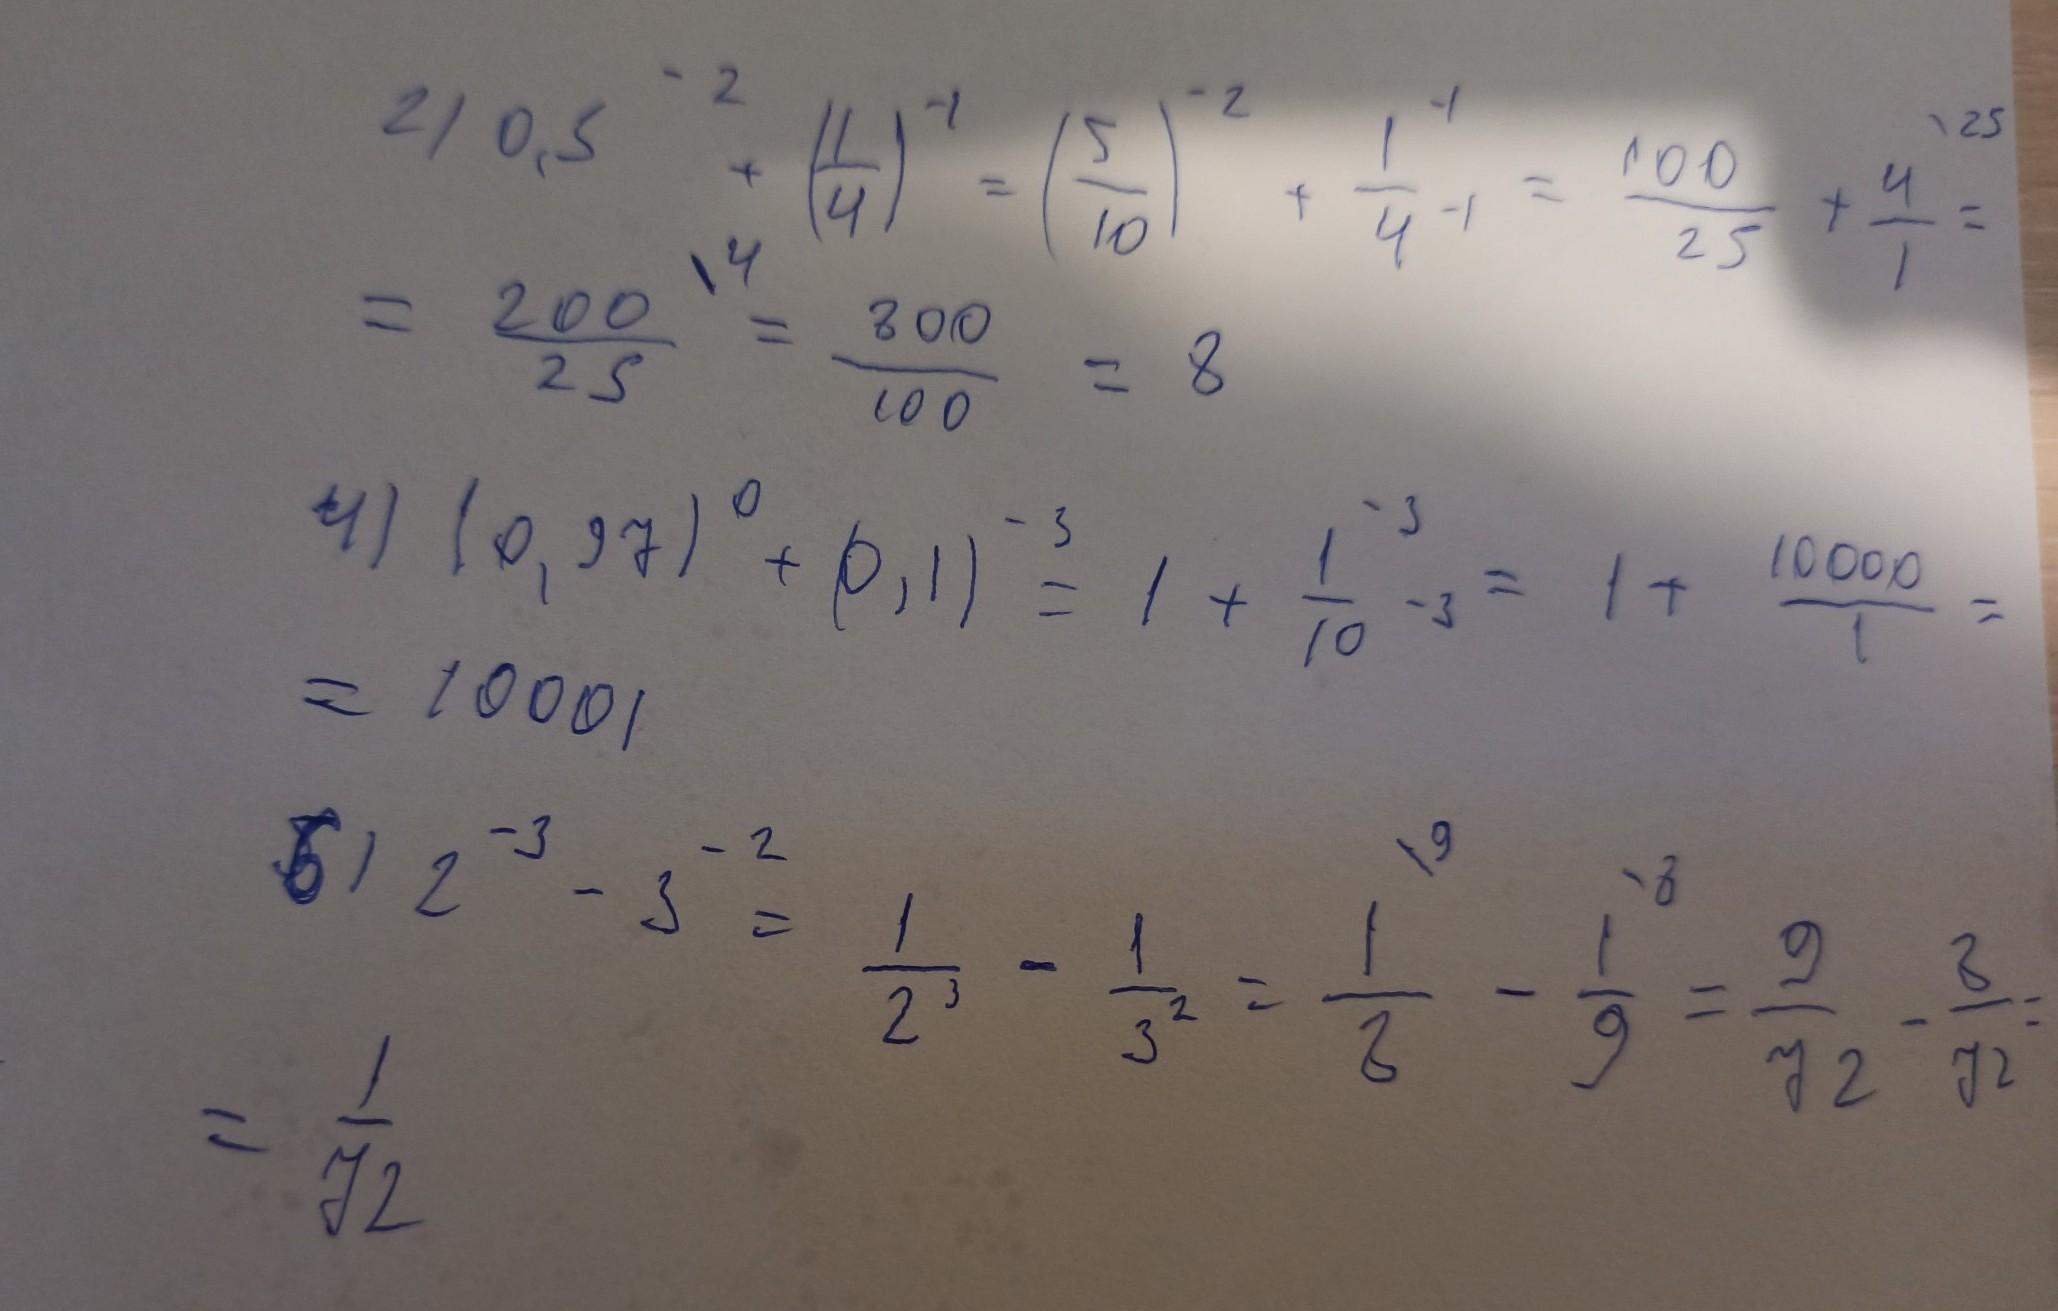 2) 0,5^-2 + (1/4)^-1 = (5/10)^-2 + 1^-1/4^-1 = 100/25 + 4/1 \25 =
= 200/25 \4 = 800/100 = 8
4) (0,97)^0 + (0,1)^-3 = 1 + 1^-3/10^-3 = 1 + 10000/1 =
= 10001
6) 2^-3 - 3^-2 = 1/2^3 - 1/3^2 = 1/8 \9 - 1/9 \8 = 9/72 - 8/72 =
= 1/72